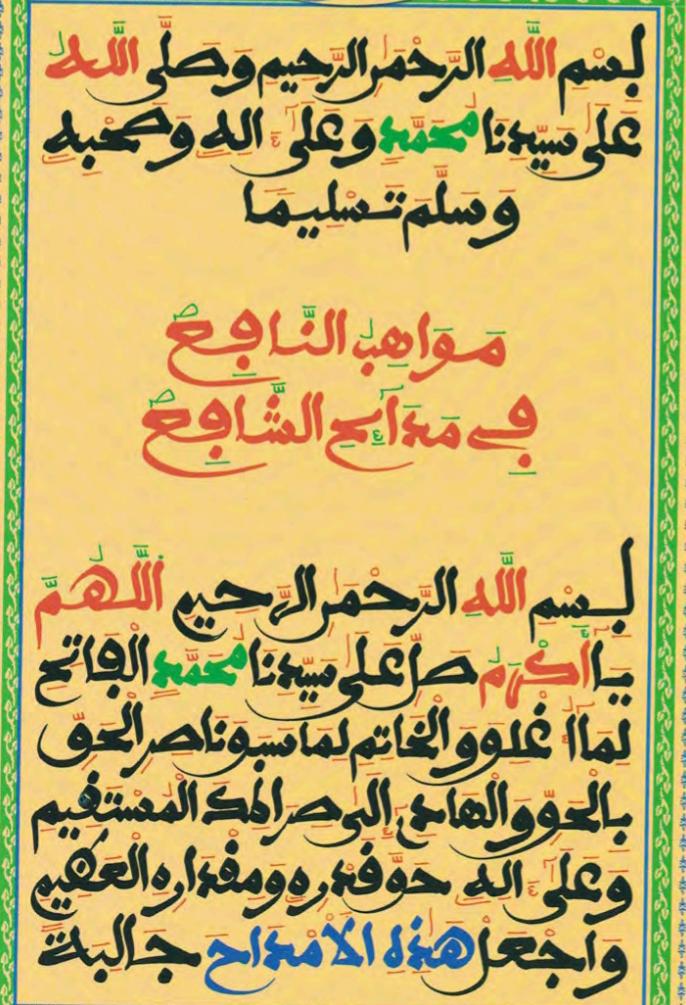 بِسْمِ اللَّهِ الرَّحْمَنِ الرَّحِيمِ وَصَلَّى اللَّهُ
عَلَى سَيِّدِنَا مُحَمَّدٍ وَعَلَى آلِهِ وَصَحْبِهِ
وَسَلَّمَ تَسْلِيمًا
مَوَاهِبُ النَّافِعِ
فِي مَدَائِحِ الشَّافِعِ
بِسْمِ اللَّهِ الرَّحْمَنِ الرَّحِيمِ اللَّهُمَّ
يَا أَكْرَمُ صَلِّ عَلَى سَيِّدِنَا مُحَمَّدٍ الْفَاتِحِ
لِمَا أُغْلِقَ وَالْخَاتِمِ لِمَا سَبَقَ نَاصِرِ الْحَقِّ
بِالْحَقِّ وَالْهَادِي إِلَى صِرَاطِكَ الْمُسْتَقِيمِ
وَعَلَى آلِهِ حَقَّ قَدْرِهِ وَمِقْدَارِهِ الْعَظِيمِ
وَاجْعَلْ هَذِهِ الْأَمْدَاحَ جَالِبَةً